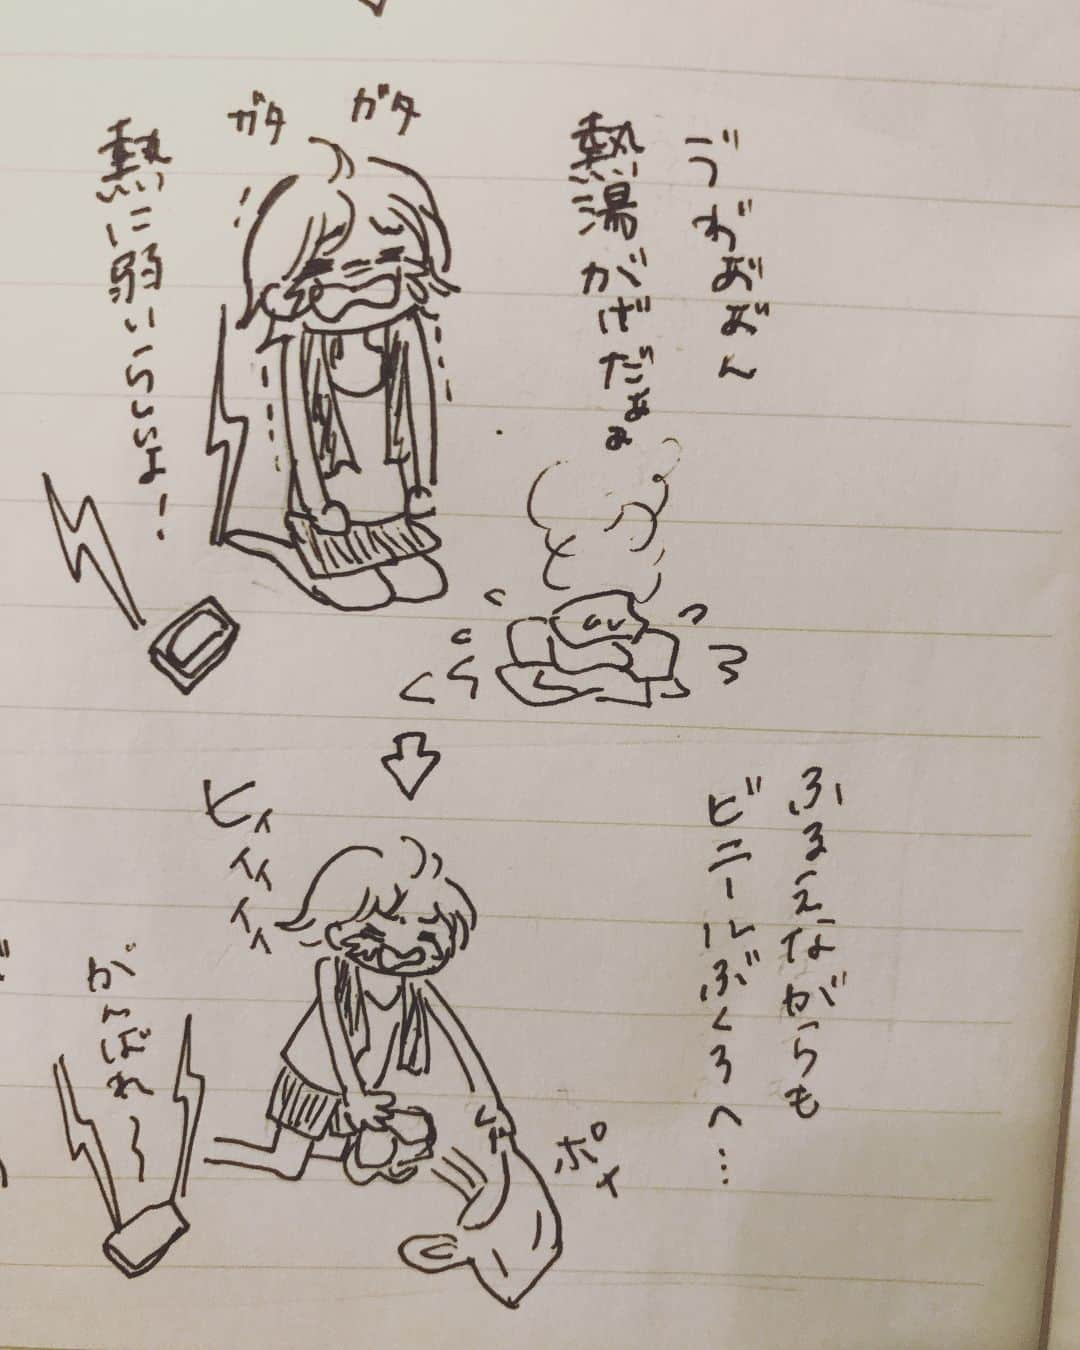 ゔわ゙お゙お゙ん
熱湯がげだぁぁ
ガタ ガタ
熱に弱いらしいよ！
ふるえながらも
ビニールぶくろへ…
ヒィィィィィ
ポイ
がんばれ〜